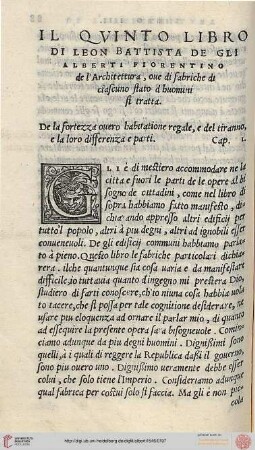 IL QVINTO LIBRO
DI LEON BATTISTA DE GLI
ALBERTI FIORENTINO
de l'Architettura, oue di fabriche di
ciascuno stato d'huomini
si tratta.
De la fortezza ouero habitatione regale, e del tiranno,
e la loro differenza e parti. Cap. I.
GLI è di mestiero accommodare ne la
città e fuori le parti de le opere al bi
sogno de cittadini, come nel libro di
sopra habbiamo fatto manifesto, di-
chiarando appresso altri edificij per
tutto'l popolo, altri à piu degni, altri ad ignobili esser
conueneuoli. De gli edificij communi habbiamo parla-
to à pieno. Questo libro le fabriche particolari dichia
rerà. ilche quantunque sia cosa uaria e da manifestare
difficile, io tuttauia quanto d'ingegno mi prestera Dio,
studiero di farui conoscere, ch'io niuna cosa habbia uolu
to tacere, che si possa per tale cognitione desiderare, ne
usare piu eloquenza ad ornare il parlar mio, di quanto
ad essequire la presente opera sarà bisogneuole. Comin-
ciamo adunque da piu degni huomini. Dignissimi sono
quelli, à i quali di reggere la Republica dassi il gouerno,
sono piu ouero uno. Dignissimo ueramente debbe esser
colui, che solo tiene l'Imperio. Consideriamo adunque
qual fabrica per costui solo si faccia. Ma gli è non pic-
cola